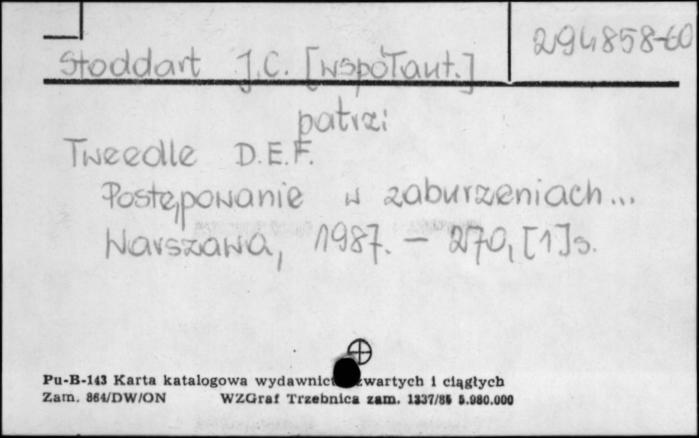 294858-60
Stoddart J.C. [współaut.]
patrzi
Tweedle D.E.F.
Postępowanie w zaburzeniach...
Warszawa, 1987. - 270, [1]s.
Pu-B-143 Karta katalogowa wydawnict zwartych i ciągłych
Zam. 864/DW/ON WZGraf Trzebnica zam. 1337/86 5.980.000